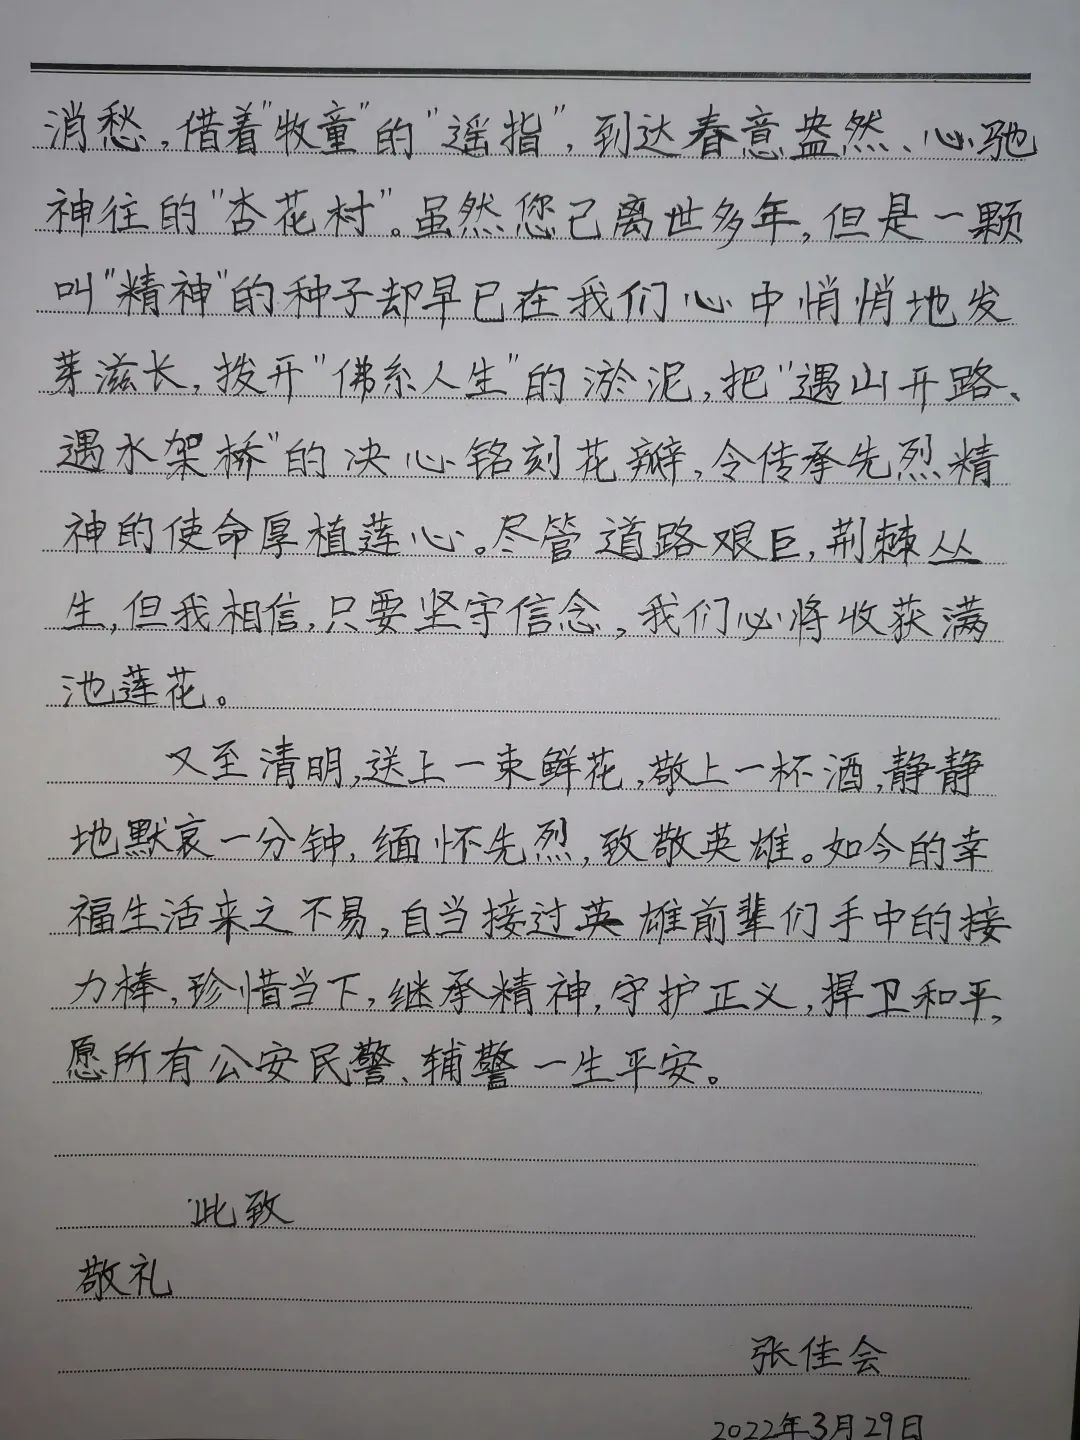 消愁，借着"牧童"的"遥指"，到达春意盎然、心驰
神往的"杏花村"。虽然您已离世多年，但是一颗
叫"精神"的种子却早已在我们心中悄悄地发
芽滋长，拨开"佛系人生"的淤泥，把"遇山开路、
遇水架桥"的决心铭刻花瓣，令传承先烈精
神的使命厚植莲心。尽管道路艰巨，荆棘丛
生，但我相信，只要坚守信念，我们必将收获满
池莲花。
又至清明，送上一束鲜花，敬上一杯酒，静静
地默哀一分钟，缅怀先烈，致敬英雄。如今的幸
福生活来之不易，自当接过英雄前辈们手中的接
力棒，珍惜当下，继承精神，守护正义，捍卫和平，
愿所有公安民警、辅警一生平安。
此致
敬礼
张佳会
2022年3月29日